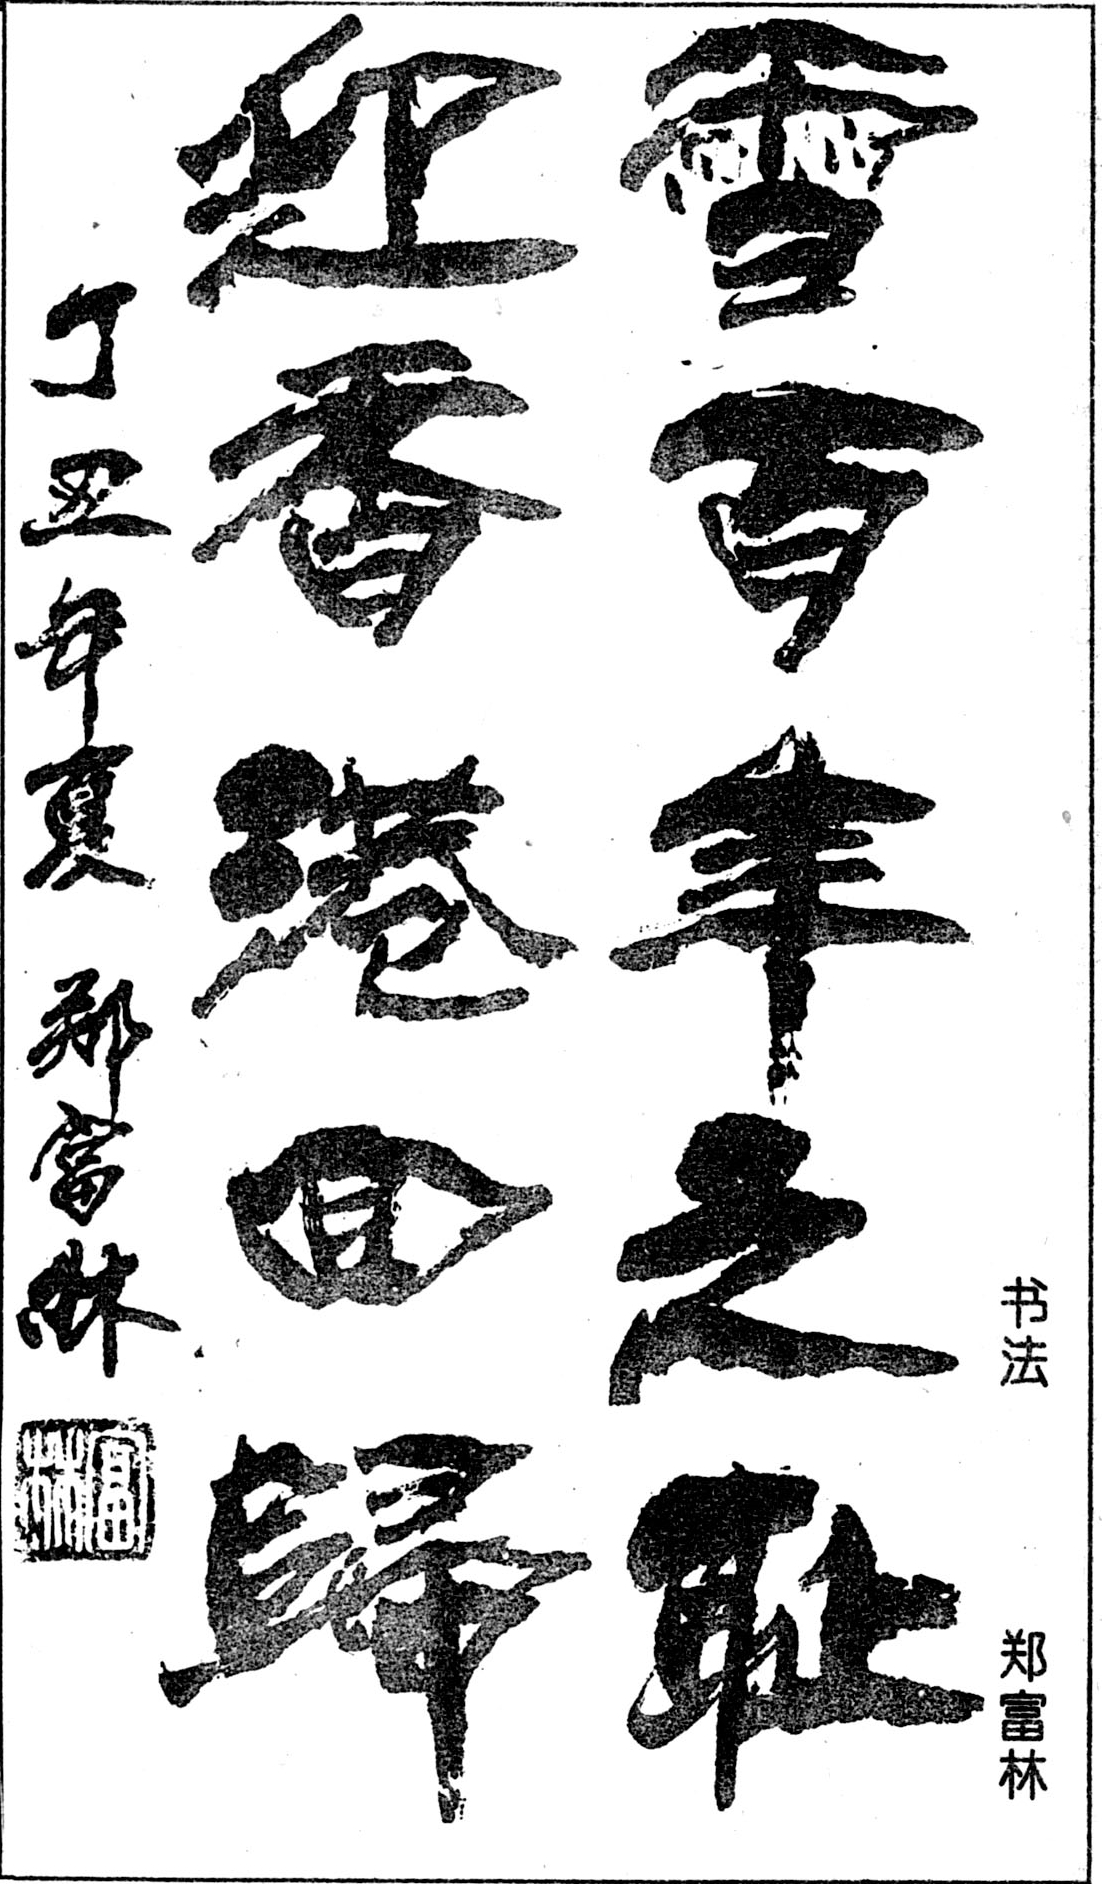 雪百年之耻
迎香港回歸
丁丑年夏 郑富林
富林
书法 郑富林